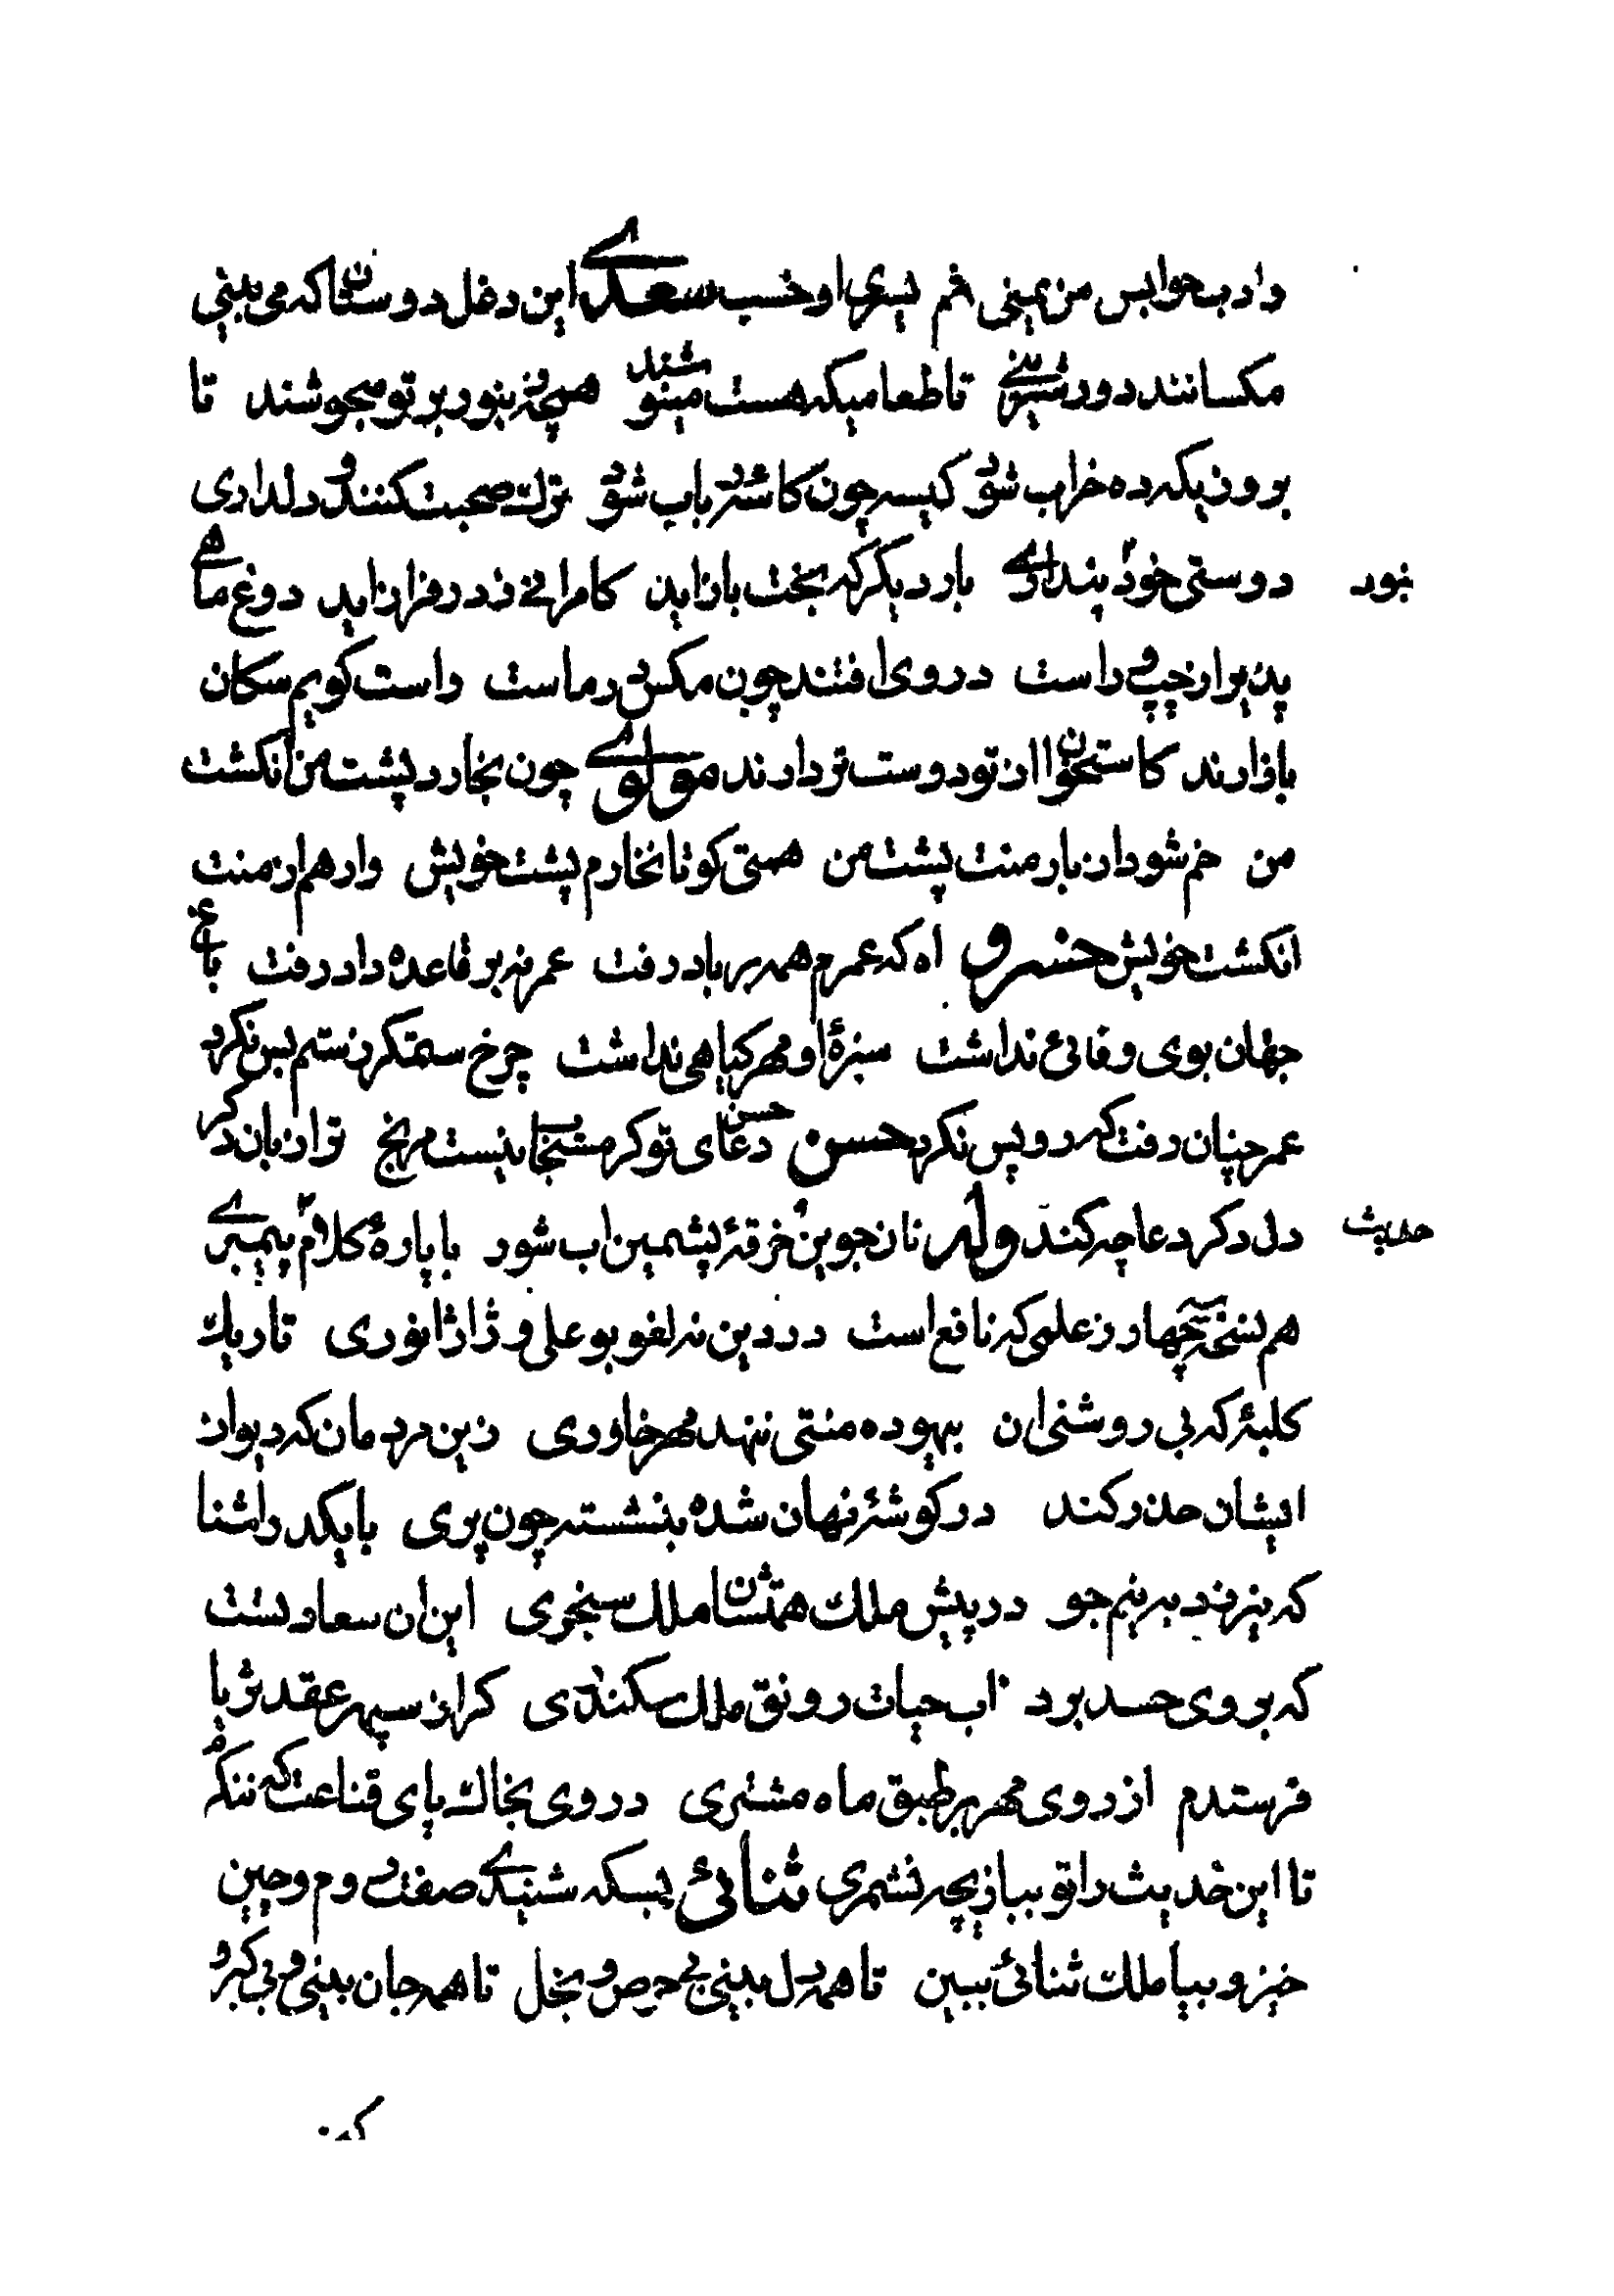 داد بحوابس من یمینی انم یسری او خسب سعدی این دغل دوستان که می بینی
مکسانند دور شیرینی تا طعامیکه هست مینوشند همچو زنبور بر تو میجوشند تا
بروزیکه ده خراب شود کیسه چون کاسه رباب شود ترک صحبت کنند و دلداری
دوستی خود نپنداری بار دیگر که بخت باز اید کامرانی ز در فراز اید دوغ مائی
پذیر از چپ و راست در وی افتند چون مکس در ماست راست کویم سکان
بازارند کاستخوان از تو دوست تر دارند مولوی چون نخارد پشت من انکشت
من خم شود از بار منت پشت من همتی کو تا نخارم پشت خویش وارهم از منت
انکشت خویش خسرو اه که عمرم همه بر باد رفت عمر نه بر قاعده داد رفت باغ
جهان بوی وفائی نداشت سبزۀ او مهر کیاهی نداشت چرخ ستمکر ز ستم بس نکرد
عمر چنان رفت که رو پس نکرد حسن حسن دعای تو کر مستجاب نیست مرنج ترا زبان دکر
دل دکر دعا چه کند وله نان جوین و خرقۀ پشمین و اب شور با پارۀ کلام و حدیث پیمبری
هم نسخه چهار ز علمی که نافع است در دین نه لغو بو علی و ژاژ انوری تاریک
کلبۀ که پی روشنی ان بیهوده منتی ننهد مهر خاوری زین مردمان که دیو از
ایشان حذر کند در کوشۀ نهان شده بنشسته چون پری با یکدو اشنا
که نیرزد به نیم جو در پیش ملک همتشان ملک سنجری این ان سعادتست
که بر وی حسد برد اب حیات رونق ملک سکندری کر از سپهر عقد ثریا
فرستدم از روی مهر بر طبق ماه مشتری در وی بخاک پای قناعت که ننکرم
تا این حدیث را تو ببازیچه نشمری ثنائی بسکه شنیدی صفت روم و چین
خیز و بیا ملک ثنائی ببین تا همه دل بینی بی حرص و بخل تا همه جان بینی بی کبر و